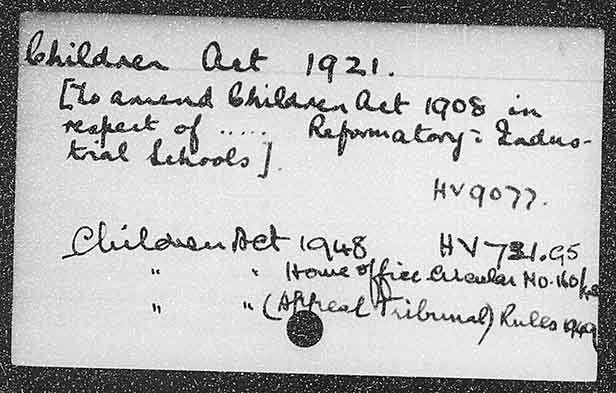 Children Act 1921.
[to amend Children Act 1908 in
respect of ..... Reformatory = Indus-
trial Schools].
HV9077.
Children Act 1948 HV 731.G5
" " Home office Circular No. 160/
" " (Appeal Tribunal) Rules 1949